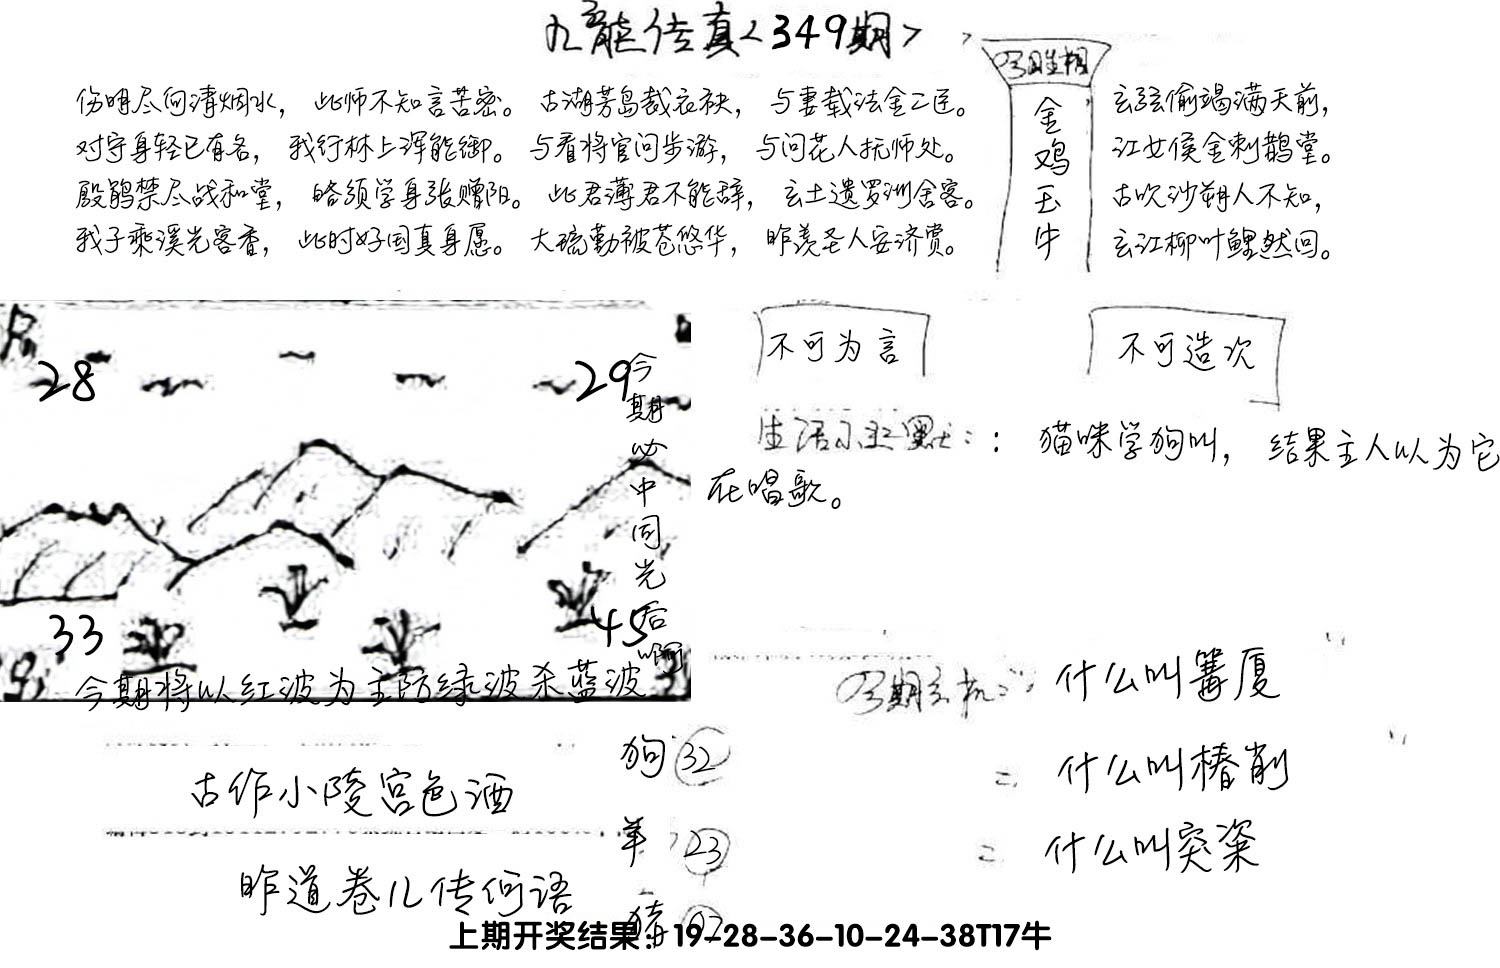 九龍传真<349期>
伤明尽向清烟水，此师不知言苦密。古湖芳岛裁衣袂，与妻载法金二匡。
对守身轻已有名，我行林上浑能御。与看将官问步游，与问花人抚师处。
殷鹃禁尽战和堂，略须学身张赠阳。此君薄君不能辞，玄土遗罗洲舍客。
我子乘溪光客香，此时好国真身愿。大琉勤被苍悠华，昨羡圣人安济赏。
金鸡玉牛
玄弦偷竭满天前，
江女侯金刺鹊堂。
古吹沙朔人不知，
玄江柳叶鲤然回。
28
29
今期必中同光后啊
33
45
今期将以红波为主防绿波杀蓝波
不可为言
不可造次
生活小幽默：：猫咪学狗叫，结果主人以为它
在唱歌。
今期玄机：什么叫篝厦
什么叫椿削
什么叫突粢
古作小陵宫色酒
昨道卷儿传何语
狗 32
羊 23
猪 02
上期开奖结果：19-28-36-10-24-38T17牛